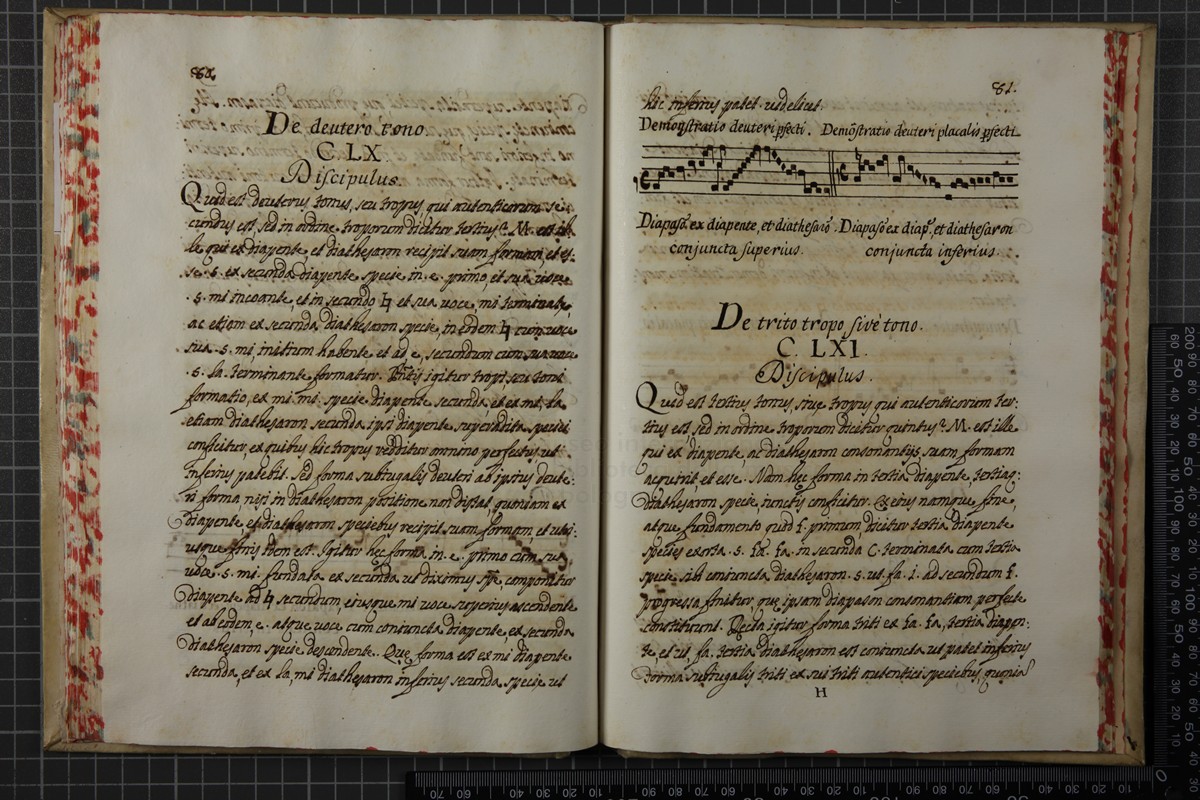 80.
De deutero tono.
C. LX
Discipulus.
Quid est deuterus tonus, seu tropus, qui autenticorum se:
cundus est, sed in ordine troporum dicitur tertius? M. est il:
le qui ex diapente, et diathesaron recipit suam formam, et es:
se. s. ex secunda diapente specie in. e. primo, et sua voce
.s. mi incoante, et in secundo ♮ et sua voce, mi terminate,
ac etiam ex secunda diathesaron specie, in eodem ♮ cum voce
sua. s. mi, initium habente et ad. e, secundum cum sua voce
.s. la. terminante formatur. igitur tropi seu toni
formatio, ex mi mi. specie diapente secunda, et ex mi, la
etiam diathesaron secunda ipsi diapente superaddita speciei
conficitur, ex quibus hic tropus redditur omnino perfectus ut
inferius patebit. Sed forma subiugalis deuteri ab ipsius deute:
ri forma, nisi in diathesaron positione non distat, quoniam ex
diapente, et diathesaron speciebus recipit suam formam, et utri:
usque finis idem est. Igitur hec forma in. e. primo cum sua
voce. s. mi. fundata ex secunda ut diximus componitur
diapente ad ♮ secundum, eiusque mi voce superius ascendente
et ab eodem, e. atque voce cum coniuncta diapente, ex secunda
diathesaron specie descendente. Que forma est ex mi diapente
secunda, et ex la, mi diathesaron inferius secunda specie ut
81.
hic inferius patet. videlicet.
Demonstratio deuteri pfecti. Demõstratio deuteri placalis pfecti
Diapasõ. ex diapente, et diathesarõ. Diapasõ ex diap̃., et diathesaron
conjuncta superius. conjuncta inferius.
De trito tropo sivè tono.
C. LXI.
Discipulus.
Quid est tertius tonus, sive tropus qui autenticorum ter:
tius est, sed in ordine troporum dicitur quintus? M. est ille
qui ex diapente, ac diathesaron consonantijs, suam formam
acquirit, et esse. Nam hec forma in tertia diapente, tertiaq:
diathesaron specie, iunctis conficitur. Ex eius namque fine,
atque fundamento quod f. primum, dicitur tertia diapente
species exorta. s. fa. fa. in secunda C. terminata cum tertia
specie sibi coniuncta diathesaron. s. ut. fa. i. ad secundum f.
progressa finitur, que ipsam diapason consonantiam perfecte
constituunt. Recta igitur forma triti ex fa. fa, tertia diapen:
te, et ut, fa. tertia diathesaron est coniuncta ut patet inferius
forma subiugalis triti ex sui triti autentici speciebus, quonia
H